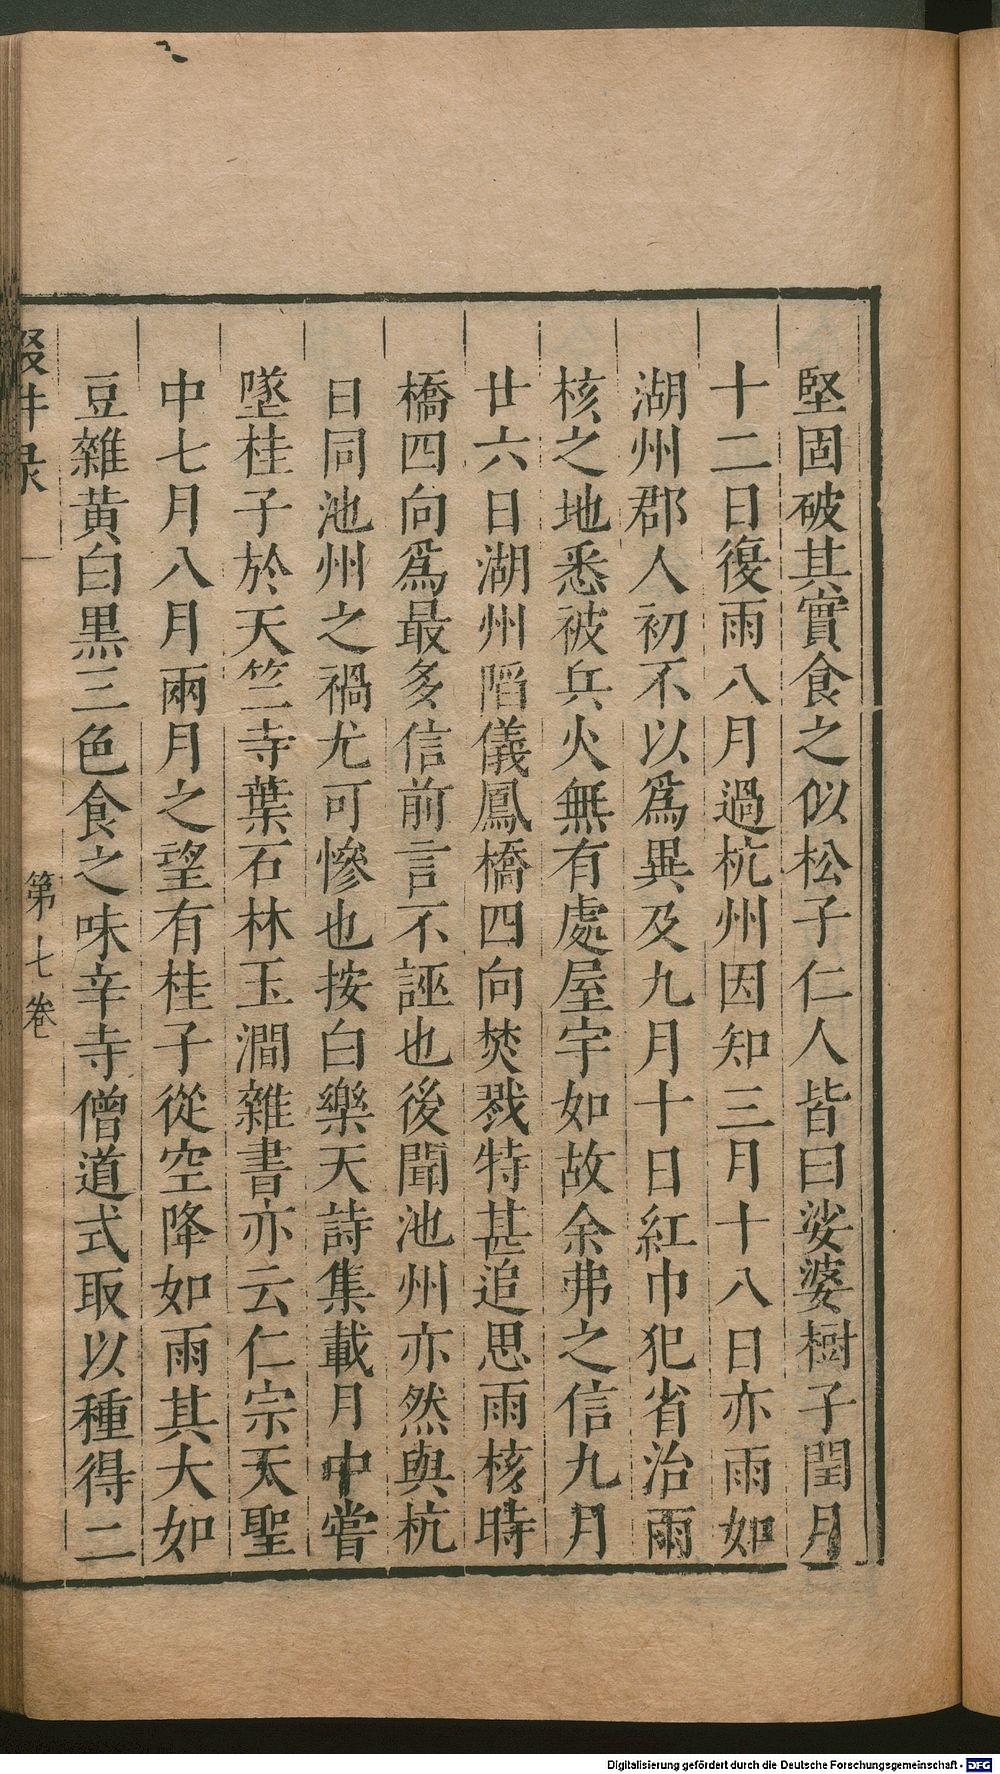 堅固破其實食之似松子仁人皆曰娑婆樹子閏月
十二日復雨八月過杭州因知三月十八日亦雨如
湖州郡人初不以爲異及九月十日紅巾犯省治雨
核之地悉被兵火無有處屋宇如故余弗之信九月
廿六日湖州陷儀鳳橋四向焚戮特甚追思雨核時
橋四向爲最多信前言不誣也後聞池州亦然與杭
日同池州之禍尤可慘也按白樂天詩集載月中嘗
墜桂子於天竺寺葉石林玉澗雜書亦云仁宗天聖
中七月八月兩月之望有桂子從空降如雨其大如
豆雜黄白黒三色食之味辛寺僧道式取以種得二
第七卷
Digitalisierung gefördert durch die Deutsche Forschungsgemeinschaft - DFG